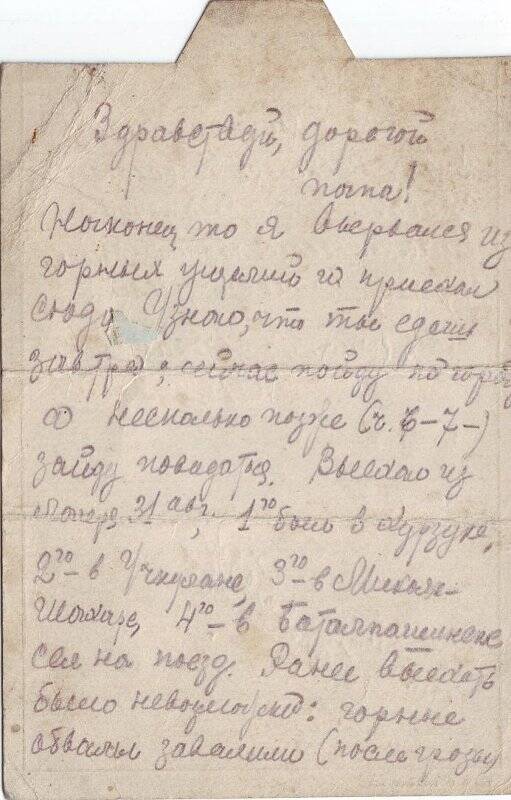 Здравствуй, дорогой
папа!
Наконец то я вырвался из
горных ущелий и приехал
сюда Узнаю, что ты едешь
завтра; сейчас пойду по городу
а несколько позже (ч. 6-7-)
зайду повидаться. Выехал из
лагеря 31 авг., 1го был в Хурзуке,
2го - в Учкулане, 3го - в Микоян-
Шахаре, 4го - в Баталпашинске
сел на поезд. Ранее выехать
было невозможно: горные
обвалы завалили (после грозы